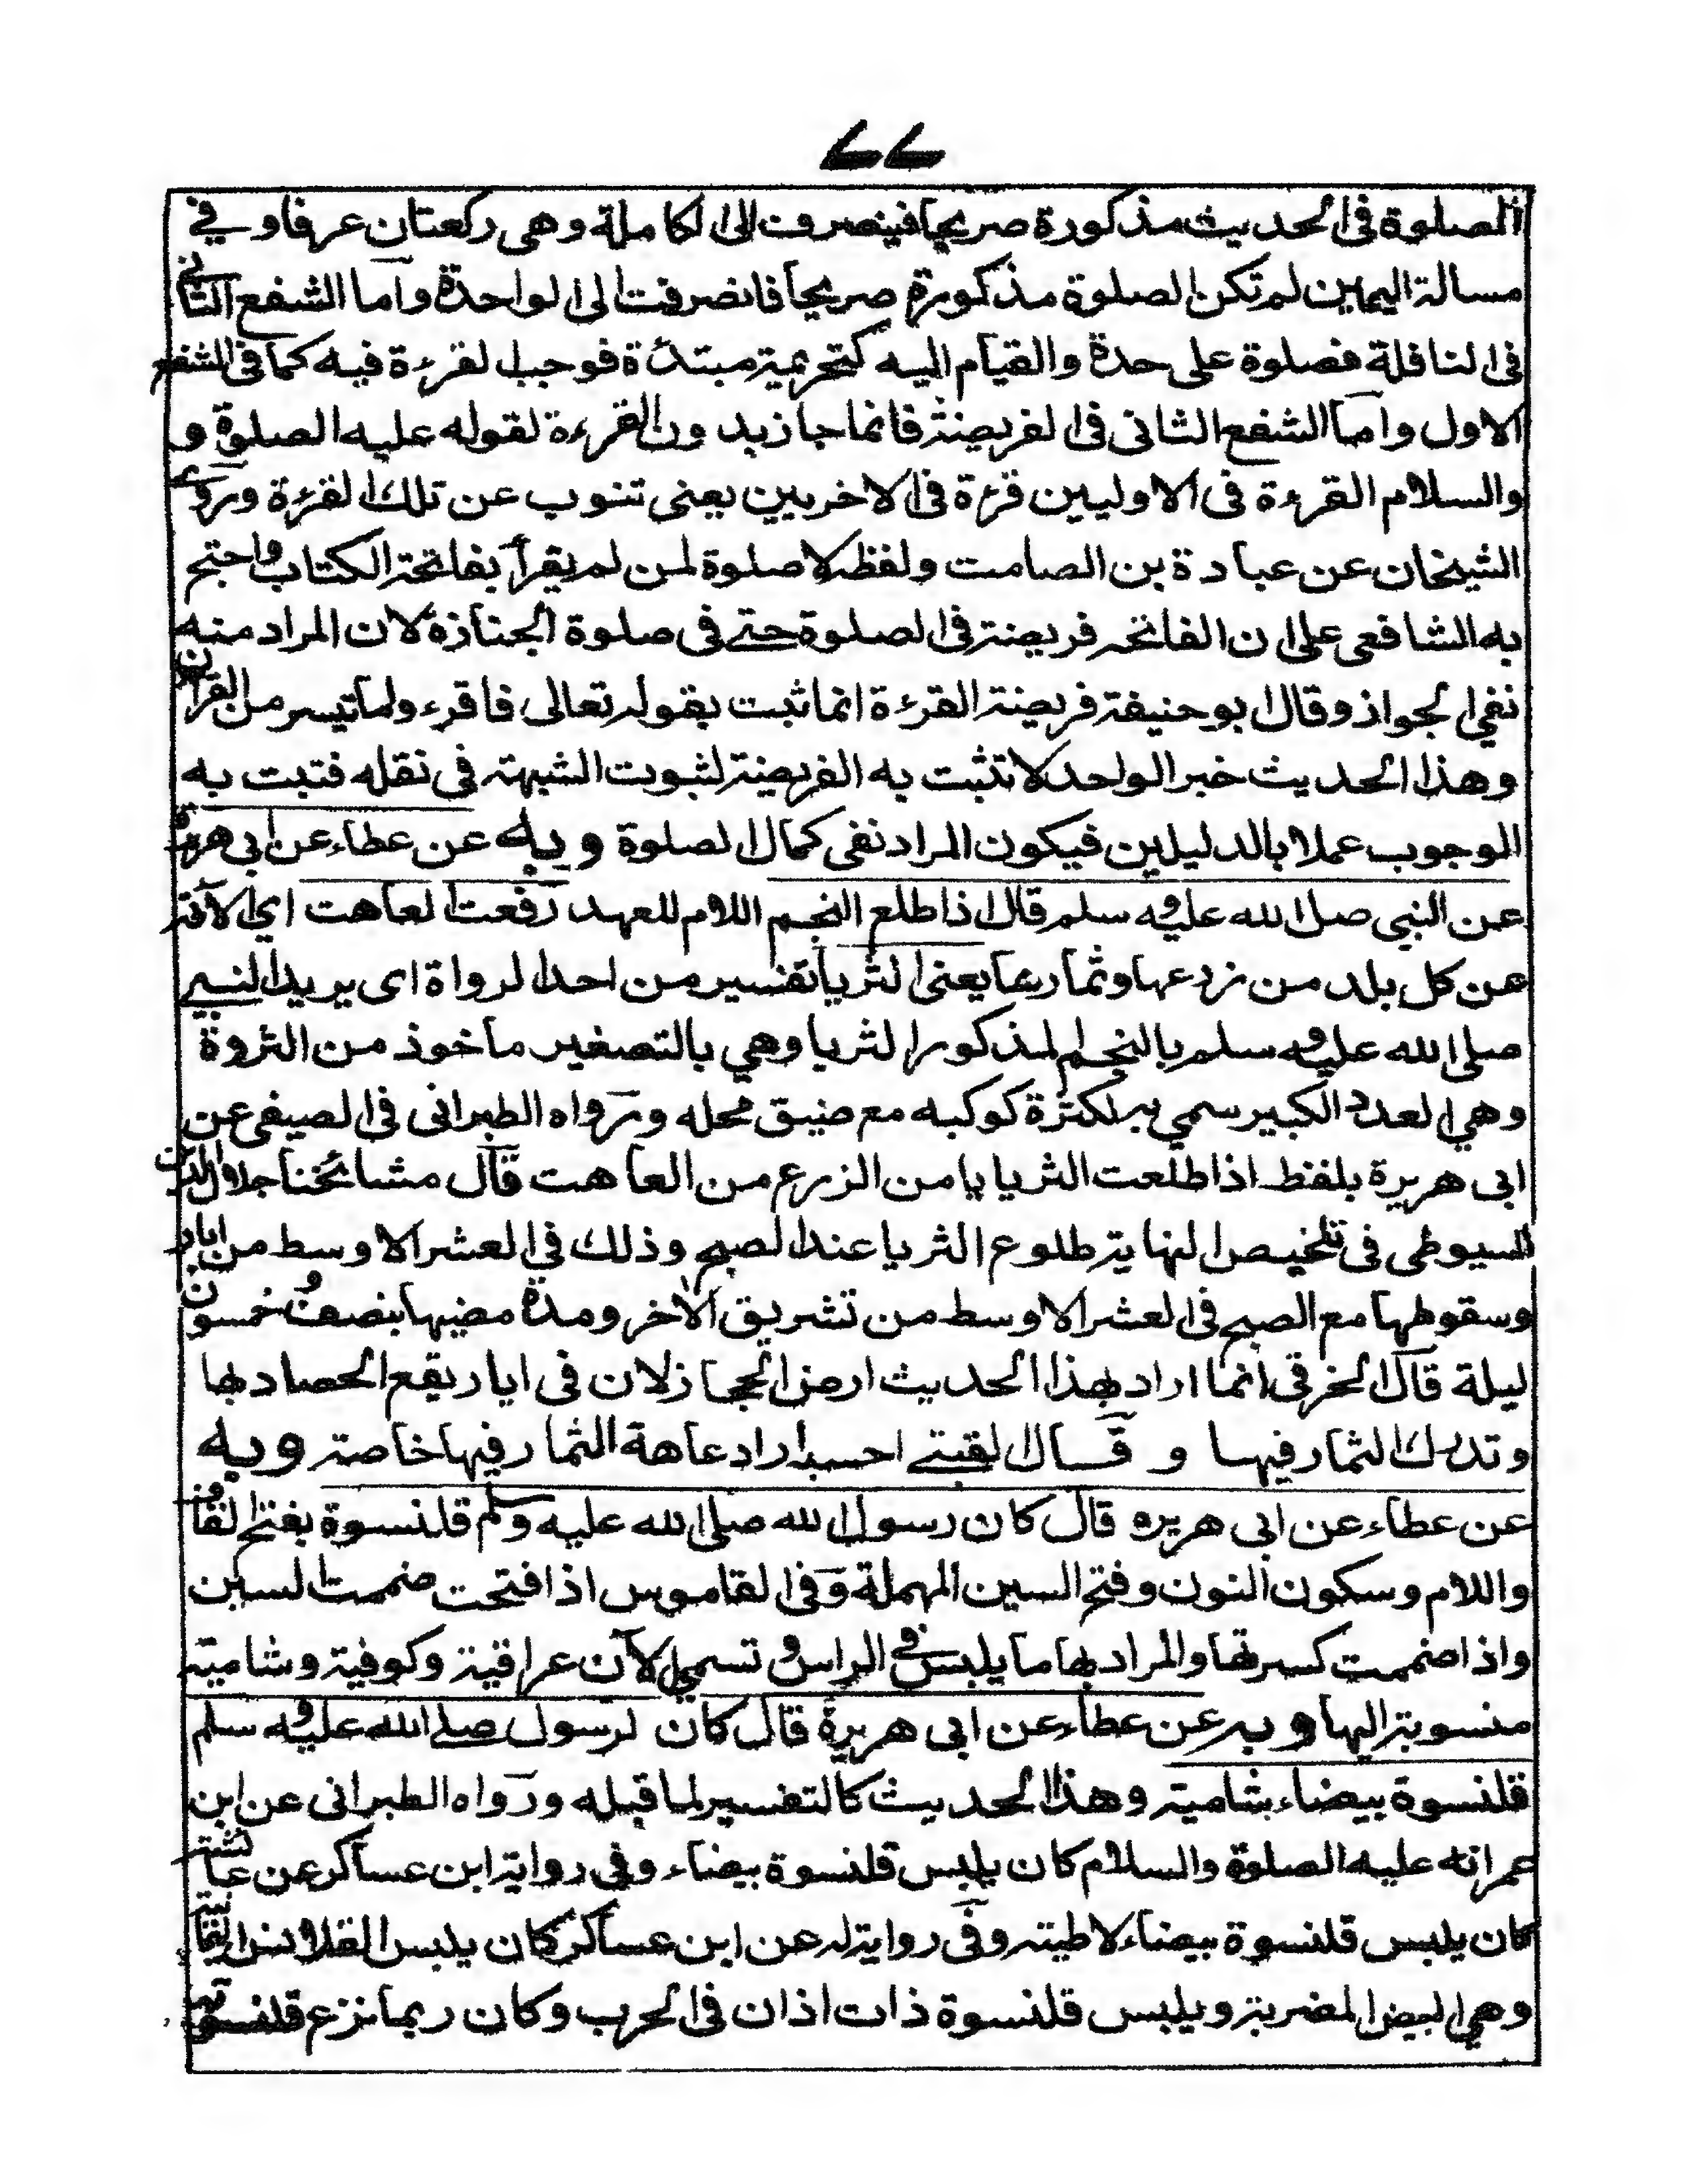 ٧٧
الصلوة فى الحديث مذكورة صريحا فينصرف الى الكاملة وهى ركعتان عرفا و في
مسالة اليمين لم تكن الصلوة مذكورة صريحا فانصرفت الى الواحدة واما الشفع الثانى
فى النافلة فصلوة على حدة والقيام اليه كتحريمة مبتدئة فوجب القرءة فيه كما فى الشفع
الاول واما الشفع الثانى فى الفريضة فانما جاز بدون القرءة لقوله عليه الصلوة و
والسلام القرءة فى الاوليين قرءة فى الاخريين يعنى تنوب عن تلك القرءة وروى
الشيخان عن عبادة بن الصامت ولفظه لا صلوة لمن لم يقرأ بفاتحة الكتاب واحتج
به الشافعى على ان الفاتحه فريضة فى الصلوة حتى فى صلوة الجنازة لان المراد منه
نفي الجواز وقال ابو حنيفة فريضة القرءة انما ثبت بقوله تعالى فاقرءوا ما تيسر من القران
وهذا الحديث خبر الواحد لا تثبت به الفريضة لثبوت الشبهة فى نقله فثبت به
الوجوب عملا بالدليلين فيكون المراد نفى كمال الصلوة وبه عن عطاء عن ابى هريرة
عن النبي صلى الله عليه وسلم قال اذا طلع النجم اللام للعهد رفعت العاهت اى الآفة
عن كل بلد من زرعها وثمارها يعنى الثريا تفسير من احد الرواة اى يريد النبى
صلى الله عليه وسلم بالنجم المذكور الثريا وهي بالتصغير ماخوذ من الثروة
وهي العدد الكبير سمي به لكثرة كوكبه مع ضيق محله ورواه الطبرانى فى الصيفى عن
ابى هريرة بلفظ اذا طلعت الثريا يامن الزرع من العاهت قال مشائخنا جلال الدين
السيوطى فى تلخيص النهاية طلوع الثريا عند الصبح وذلك في العشر الاوسط من ايار
وسقوطها مع الصبح فى العشر الاوسط من تشريق الآخر ومدة مضيها بنصف وخمسون
ليلة قال الخرقى انما اراد بهذا الحديث ارض الحجاز لان فى ايار يقع الحصاد بها
وتدرك الثمار فيها و قال القبتى احسب اراد عاهة الثمار فيها خاصة وبه
عن عطاء عن ابى هريره قال كان رسول الله صلى الله عليه وسلم قلنسوة بفتح القاف
واللام وسكون النون وفتح السين المهملة وفى القاموس اذا فتحت ضممت السين
واذا ضممت كسرتها والمراد بها ما يلبس في الراس و تسمى الآن عراقية وكوفية وشامية
منسوبة اليها وبه عن عطاء عن ابى هريرة قال كان لرسول صلى الله عليه وسلم
قلنسوة بيضاء شامية وهذا الحديث كالتفسير لما قبله ورواه الطبرانى عن ابن
عمر انه عليه الصلوة والسلام كان يلبس قلنسوة بيضاء وفى رواية ابن عساكر عن عائشة
كان يلبس قلنسوة بيضاء لاطية وفى رواية له عن ابن عساكر كان يلبس القلانس
وهي البيض المضربة ويلبس قلنسوة ذات اذان فى الحرب وكان ربما نزع قلنسوته